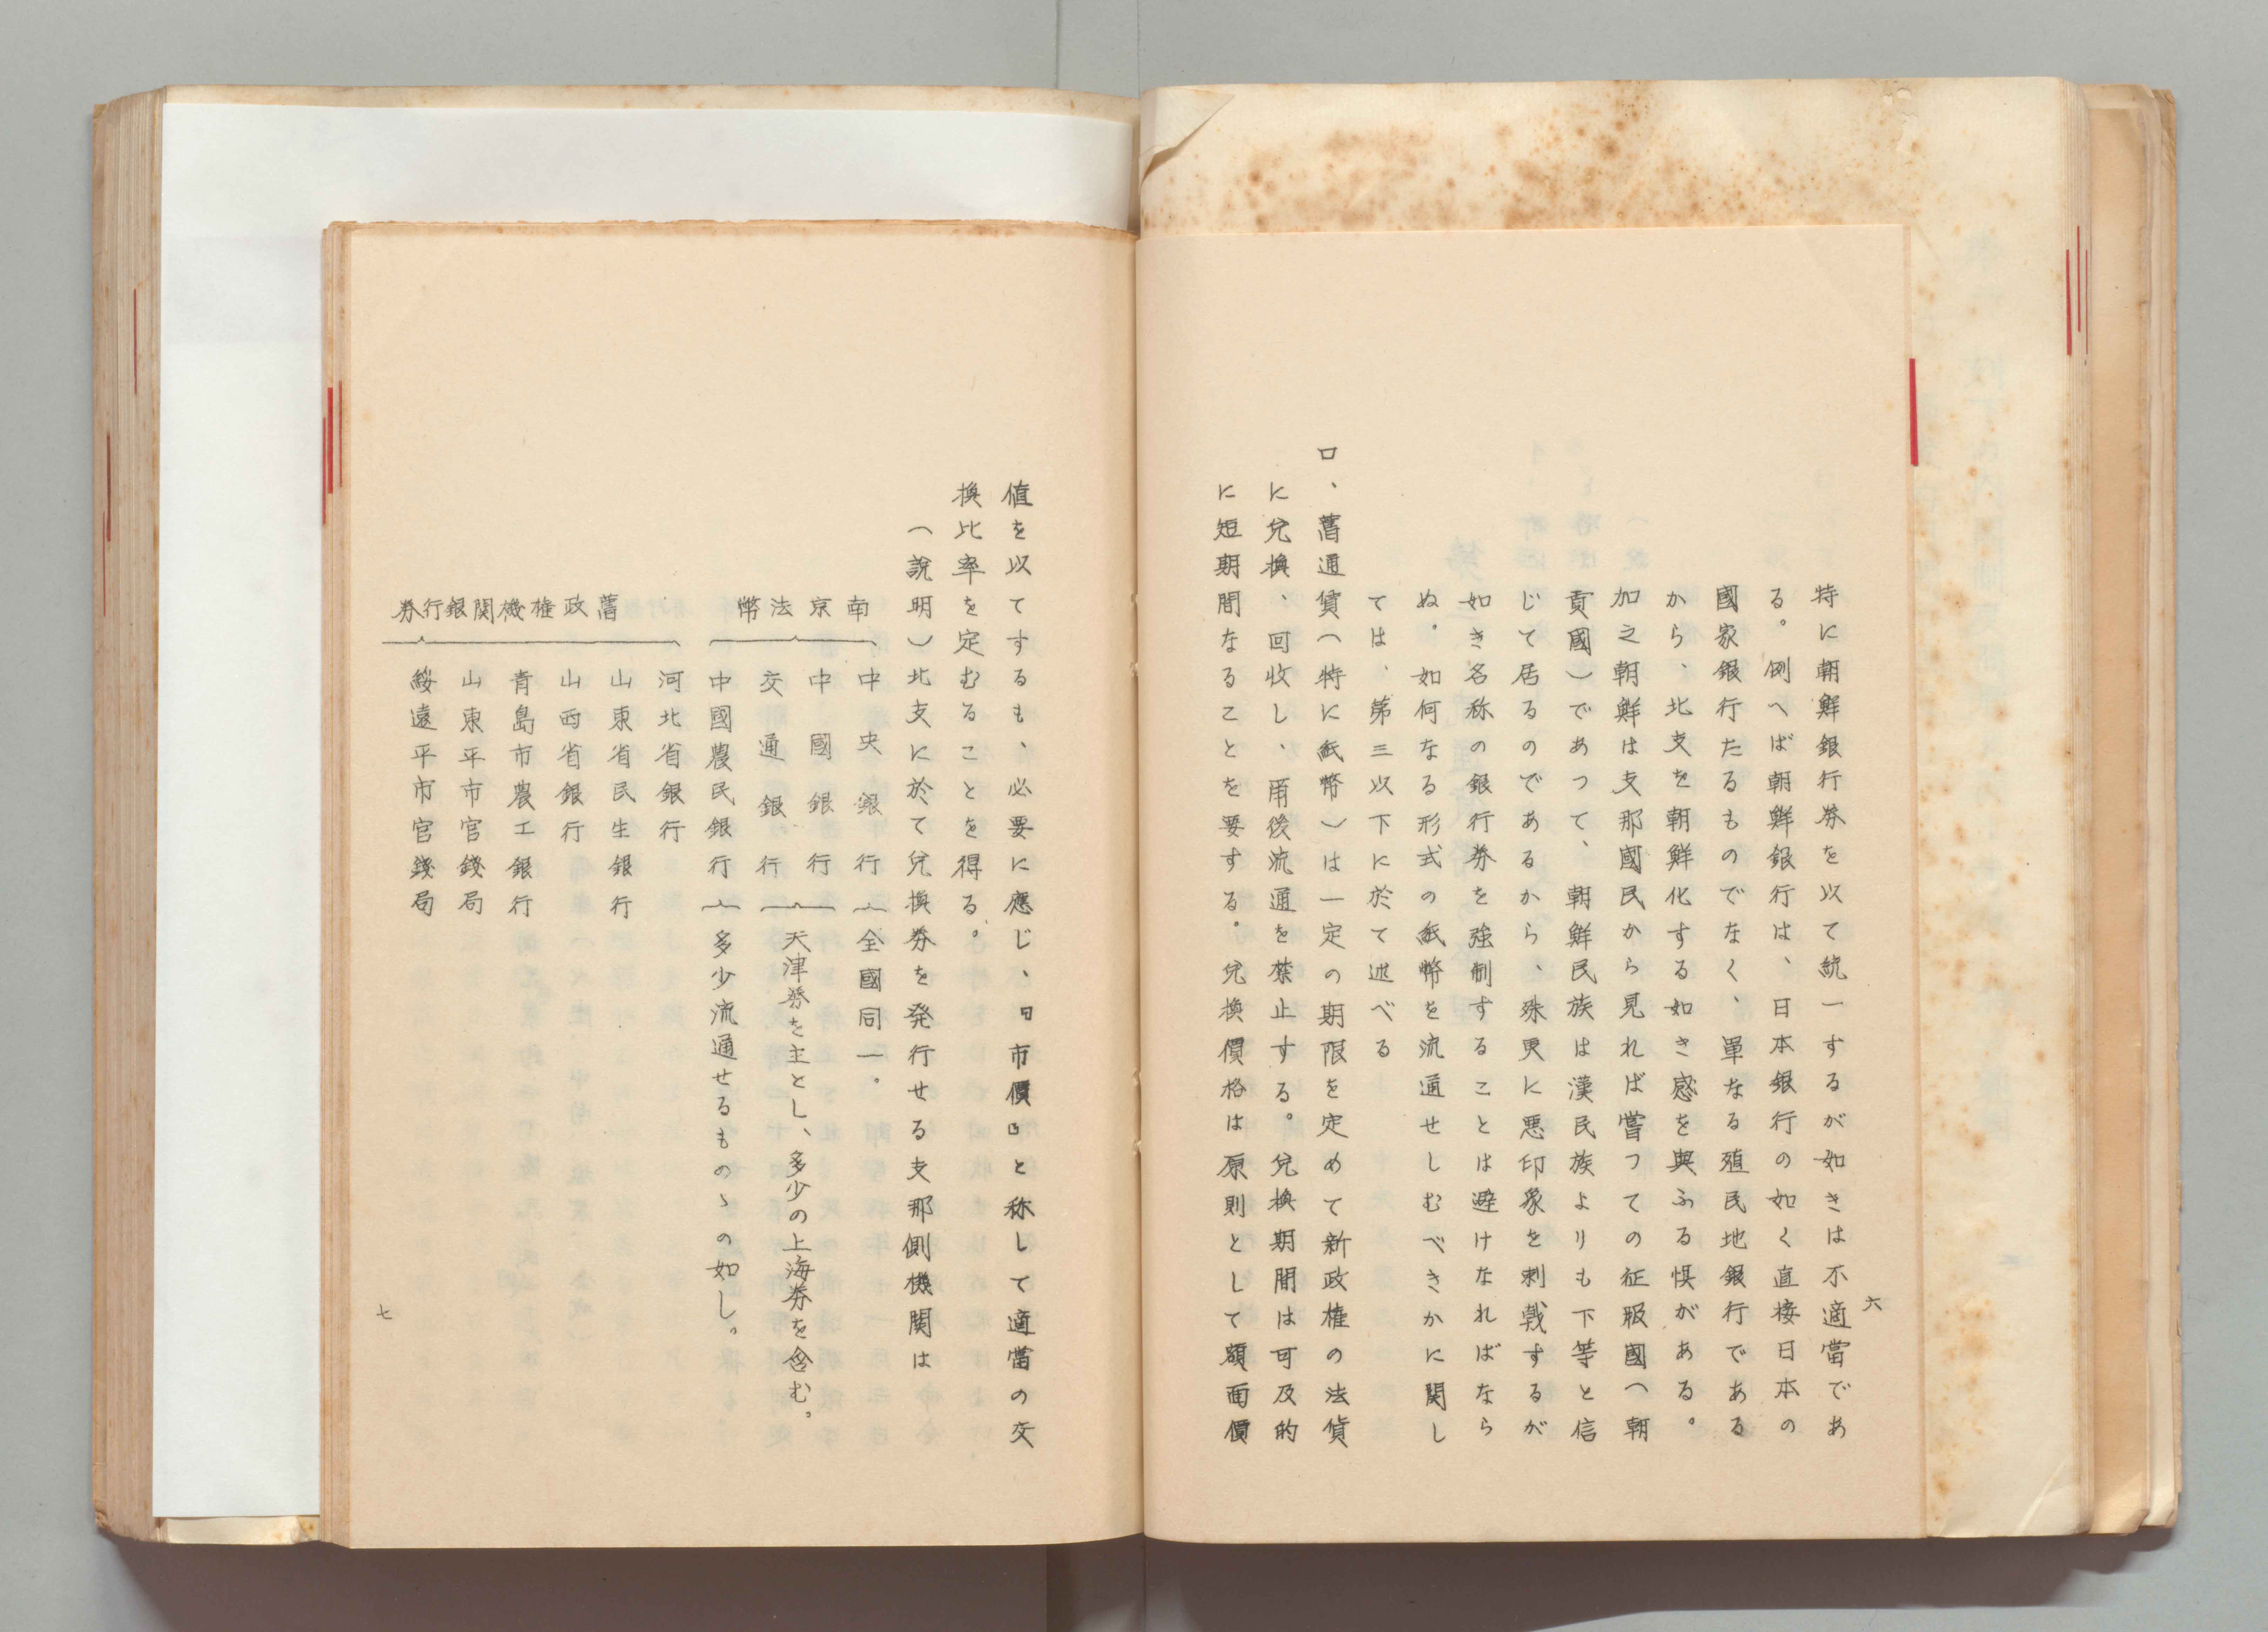 六
特に朝鮮銀行券を以て統一するが如きは不適當であ
る。例へば朝鮮銀行は、日本銀行の如く直接日本の
國家銀行たるものでなく、單なる殖民地銀行である
から、北支を朝鮮化する如き感を與ふる惧がある。
加之朝鮮は支那國民から見れば嘗つての征服國(朝
貢國)であつて、朝鮮民族は漢民族よりも下等と信
じて居るのであるから、殊更に悪印象を刺戟するが
如き名称の銀行券を強制することは避けなればなら
ぬ。如何なる形式の紙幣を流通せしむべきかに関し
ては、第三以下に於て述べる
ロ、舊通貨(特に紙幣)は一定の期限を定めて新政権の法貨
に兌換、回收し、甭後流通を禁止する。兌換期間は可及的
に短期間なることを要する。兌換價格は原則として額面價
値を以てするも、必要に應じ、「市價」と称して適當の交
換比率を定むることを得る。
(説明)北支に於て兌換券を発行せる支那側機関は
南京法幣
中央銀行 全國同一。
中國銀行
交通銀行
天津券を主とし、多少の上海券を含む。
中國農民銀行 多少流通せるものゝの如し。
舊政権機関銀行券
河北省銀行
山東省民生銀行
山西省銀行
青島市農工銀行
山東平市官錢局
綏遠平市官錢局
七